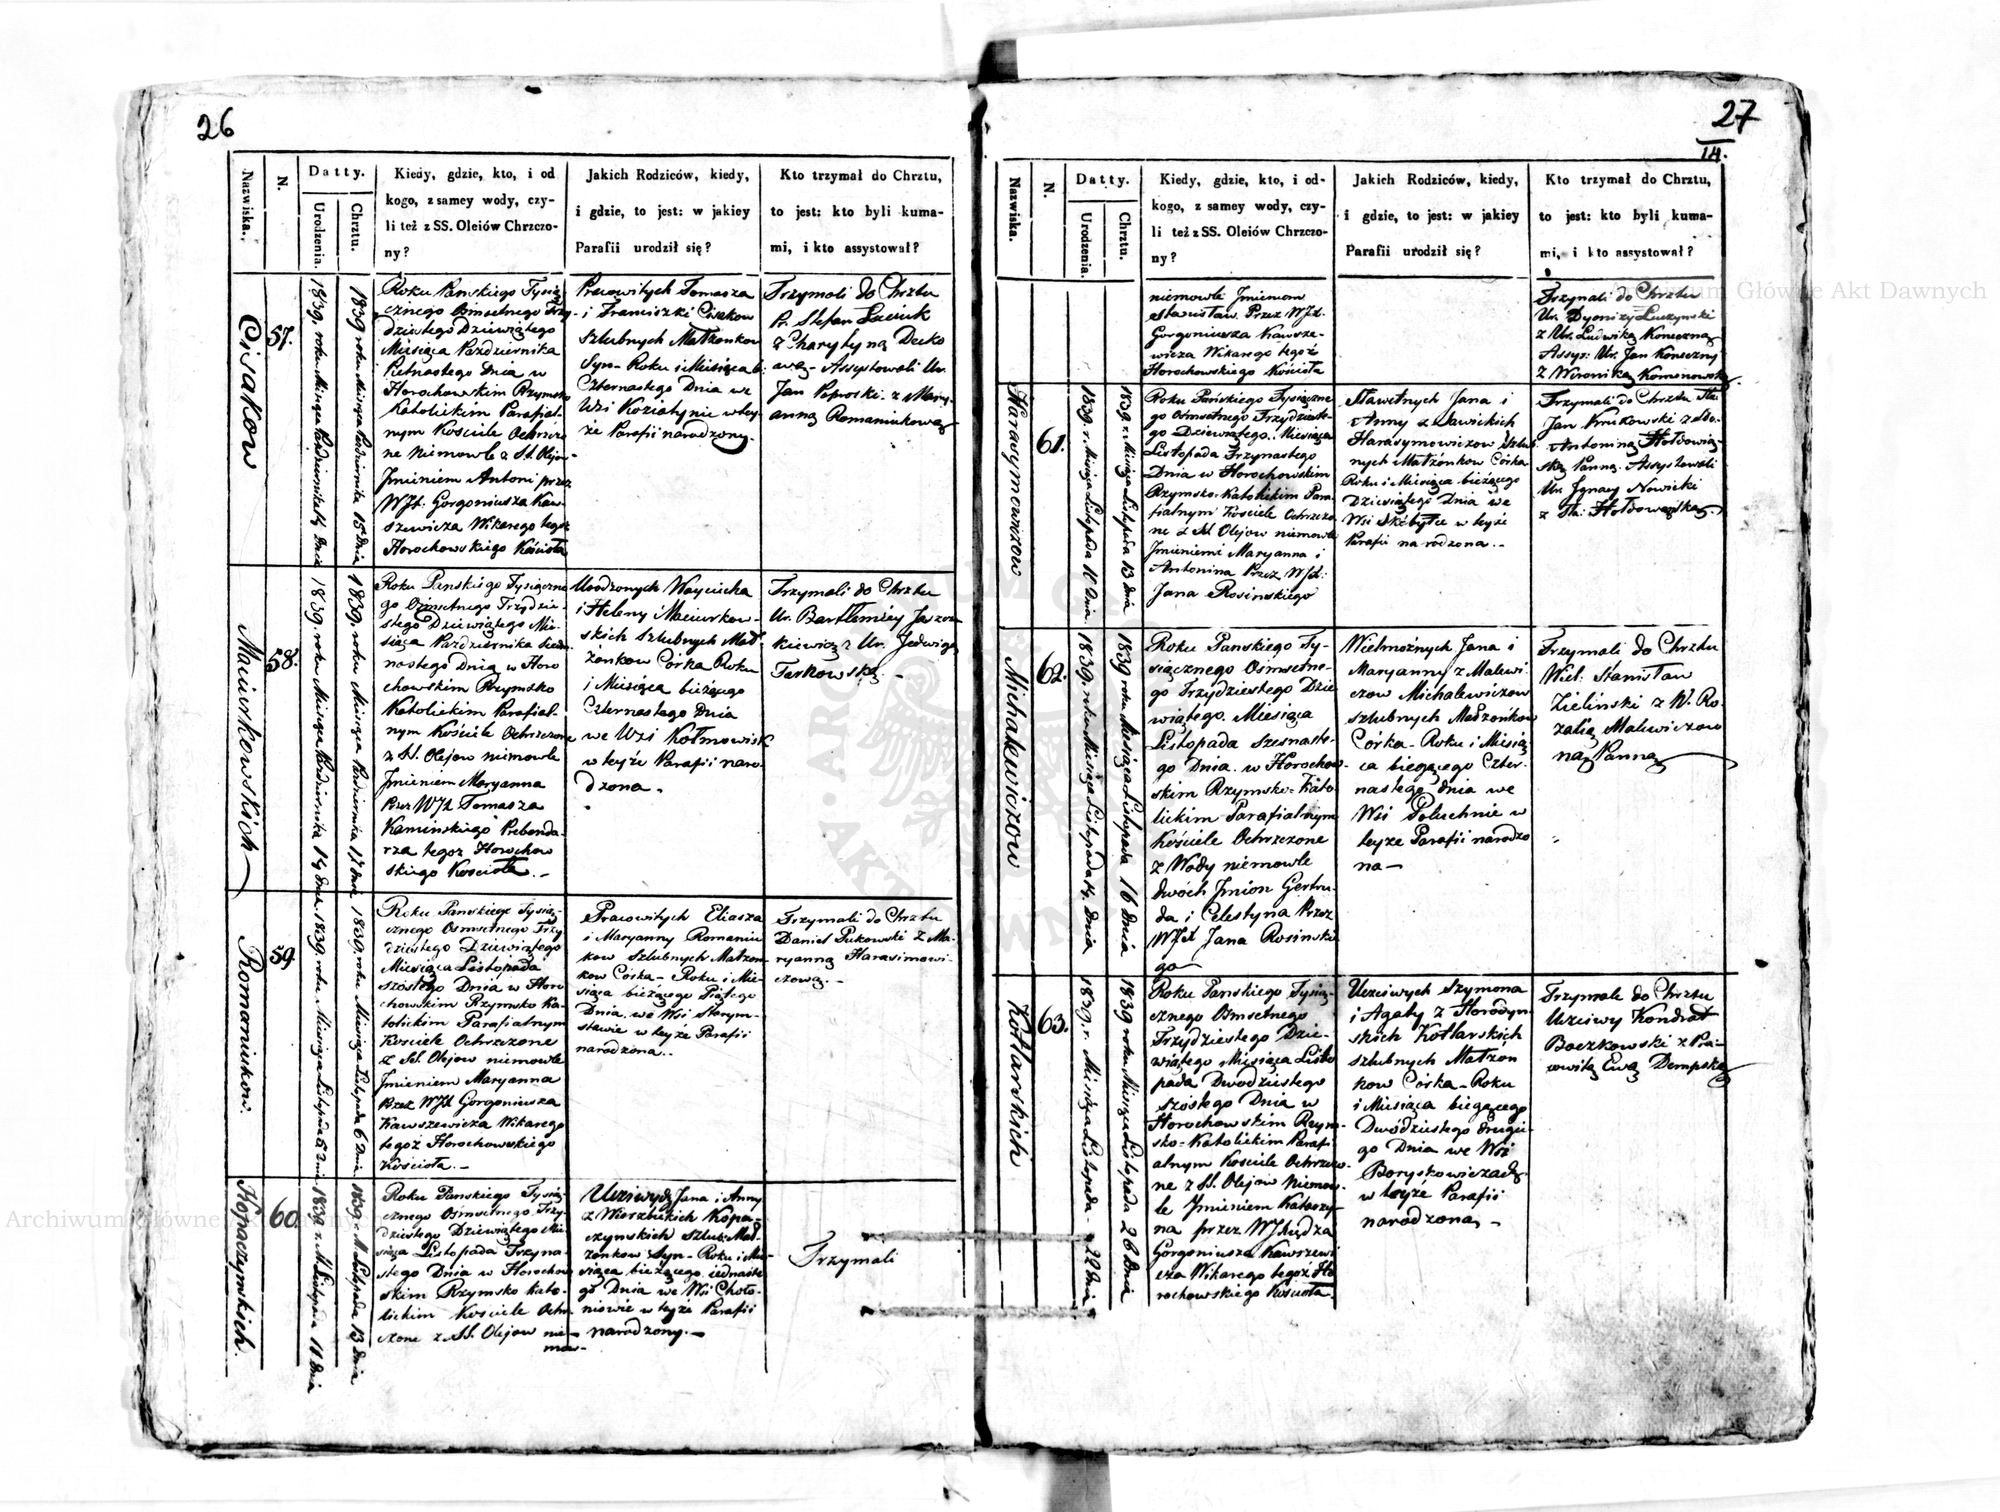 26
Nazwiska.
N.
Datty.
Urodzenia.
Chrztu.
Kiedy, gdzie, kto, i od
kogo, z samey wody, czy-
li też z SS. Oleiów Chrzczo-
ny?
Jakich Rodziców, kiedy,
i gdzie, to jest: w jakiey
Parafii urodził się?
Kto trzymał do Chrztu,
to jest: kto byli kuma-
mi, i kto assystował?
Cisaków
57.
1839. roku Miesiąca Października 14 dnia
1839 roku Miesiąca Października 15 dnia
Roku Pańskiego Tysią-
cznego Osmsetnego Trzy-
dziestego Dziewiątego
Miesiąca Października
Pietnastego Dnia w
Horochowskim Rzymsko
Katolickim Parafial-
nym Kościele Ochrzczo
ne Niemowle z SS. Olejow
Imieniem Antoni przez
WJX. Gorgoniusza Kaw-
szewicza Wikarego tegoż
Horochowskiego Kościoła
Pracowitych Tomasza
i Franciszki Cisakow
szlubnych Małżonkow
Syn - Roku i Miesiąca b:
Czternastego Dnia we
Wsi Koziatynie w tey-
że Parafii narodzony.
Trzymali do Chrztu
Pr. Stefan Szewuk
z Charytyną Decko
wą - Assystowali Ur.
Jan Paproski z Mary-
anną Romaniukową
Maciurkowskich
58.
1839. roku Miesiąca Października 14 dnia
1839. roku Miesiąca Października 17 dnia
Roku Pańskiego Tysiączne
go Osmsetnego Trzydzie-
stego Dziewiątego Mie-
siąca Października Siedm
nastego Dnia w Horo
chowskim Rzymsko
Katolickim Parafial-
nym Kościele Ochrzczone
z SS. Olejow niemowle
Imieniem Maryanna
Przez WJX Tomasza
Kaminskiego Prebenda-
rza tegoż Horochow
skiego Kościoła. -
Urodzonych Woyciecha
i Heleny Maciurkow-
skich Szlubnych Mał-
żonkow Córka Roku
i Miesiąca bieżącego
Czternastego Dnia
we Wsi Kołmowisk
w teyże Parafii naro-
dzona.
Trzymali do Chrztu
Ur. Bartłomiey Jaszcz
kiewicz z Ur. Jadwigą
Tarkowską. -
Romaniukow.
59.
1839. roku Miesiąca Listopada 5 dnia
1839. roku Miesiąca Listopada 6 Dnia
Roku Pańskiego Tysią-
cznego Osmsetnego Trzy
dziestego Dziewiątego
Miesiąca Listopada
szóstego Dnia w Horo
chowskim Rzymsko Ka-
tolickim Parafialnym
Kościele Ochrzczone
z SS. Olejow niemowle
Imieniem Maryanna
Przez WJX Gorgoniusza
Kawszewicza Wikarego
tegoż Horochowskiego
Kościoła. -
Pracowitych Eliasza
i Maryanny Romaniu
kow Szlubnych Małżon
kow Córka - Roku i Mie-
siąca bieżącego Piątego
Dnia we Wsi Starym-
stawie w teyże Parafii
narodzona..
Trzymali do Chrztu
Daniel Pukowski z Ma-
ryanną Harasimowi-
czową. -
Kopaczyńskich.
60.
1839 r. M. Listopada 11 dnia
1839. M. Listopada 13 dnia
Roku Pańskiego Tysią-
cznego Osmsetnego Trzy-
dziestego Dziewiątego Mie-
siąca Listopada Trzyna-
stego Dnia w Horochow
skim Rzymsko Kato-
lickim Kościele Ochrz
czone z SS. Olejow nie-
mo-
Uczciwych Jana i Anny
z Wierzbickich Kopa-
czynskich Szlub: Mał-
żonkow Syn - Roku i Mie-
siąca bieżącego iednaste
go Dnia we Wsi Choło-
niowie w teyże Parafii
narodzony. -
Trzymali
27
14.
Nazwiska.
N.
Datty.
Urodzenia.
Chrztu.
Kiedy, gdzie, kto, i od-
kogo, z samey wody, czy-
li też z SS. Oleiów Chrzczo-
ny?
Jakich Rodziców, kiedy,
i gdzie, to jest: w jakiey
Parafii urodził się?
Kto trzymał do Chrztu,
to jest: kto byli kuma-
mi, i kto assystował?
niemowle Imieniem
Stanisław Przez WJX.
Gorgoniusza Kawsze-
wicza Wikarego tegoż
Horochowskiego Kościoła
Trzymali do Chrztu
Ur. Dyonizy Łuczynski
z Ur. Ludwiką Konieczną
Assys: Ur. Jan Konieczny
z Weroniką Komonowską
Harasymowiczow
61.
1839. r. Miesiąca Listopada 10 Dnia
1839 r. Miesiąca Listopada 13 dnia
Roku Pańskiego Tysiączne
go Osmsetnego Trzydzieste-
go Dziewiątego. Miesiąca
Listopada Trzynastego
Dnia w Horochowskim
Rzymsko-Katolickim Para-
fialnym Kościele Ochrzczo
ne z SS. Olejow niemowle
Imieniemi Maryanna i
Antonina Przez WJX:
Jana Rosinskiego
Sławetnych Jana i
Anny z Sawickich
Harasymowiczow Szlub-
nych Małżonkow Córka
Roku i Miesiąca bieżącego
Dziesiątego Dnia we
Wsi Skobyłce w teyże
Parafii narodzona. -
Trzymali do Chrztu Sła.
Jan Krukowski z Sła.
Antoniną Hołdowią-
ską Panną. Assystowali
Ur. Ignacy Nowicki
z Sła. Hołdowąską
Michalewiczow
62.
1839. roku Miesiąca Listopada 14. dnia
1839 roku Miesiąca Listopada 16 Dnia
Roku Pańskiego Ty-
siącznego Osmsetne-
go Trzydziestego Dzie
wiątego. Miesiąca
Listopada Szesnaste-
go Dnia w Horochow-
skim Rzymsko-Kato
lickim Parafialnym
Kościele Ochrzczone
z Wody niemowle
dwóch Imion Gertru-
da i Celestyna Przez
WJX Jana Rosinskie
go
Wielmożnych Jana i
Maryanny z Malewi-
czow Michalewiczow
szlubnych Małżonkow
Córka - Roku i Miesią
ca biegącego Czter-
nastego dnia we
Wsi Połuchnie w
teyże Parafii narodzo
na -
Trzymali do Chrztu
Wiel. Stanisław
Zieliński z W. Ro-
zalią Malewiczow
ną Panną
Kotlarskich
63.
1839. r. Miesiąca Listopada - 22 dnia
1839 roku Miesiąca Listopada 26 Dnia
Roku Pańskiego Tysią-
cznego Osmsetnego
Trzydziestego Dzie-
wiątego Miesiąca Listo
pada Dwudziestego
szóstego Dnia w
Horochowskim Rzym-
sko-Katolickim Parafi
alnym Kościele Ochrzczo-
ne z SS. Olejow Niemow-
le Imieniem Katarzy-
na przez WJ Xiędza
Gorgoniusza Kawszewi
cza Wikarego tegoż Ho
rochowskiego Kościoła.
Uczciwych Szymona
i Agaty z Horodyn-
skich Kotlarskich
szlubnych Małżon
kow Córka - Roku
i Miesiąca biegącego
Dwudziestego drugie-
go Dnia we Wsi
Boryskowiczach
w teyże Parafii
narodzona, -
Trzymali do Chrztu
Uczciwy Kondrat
Boczkowski z Pra-
cowitą Ewą Dempską
Archiwum Główne Akt Dawnych
Archiwum Główne Akt Dawnych